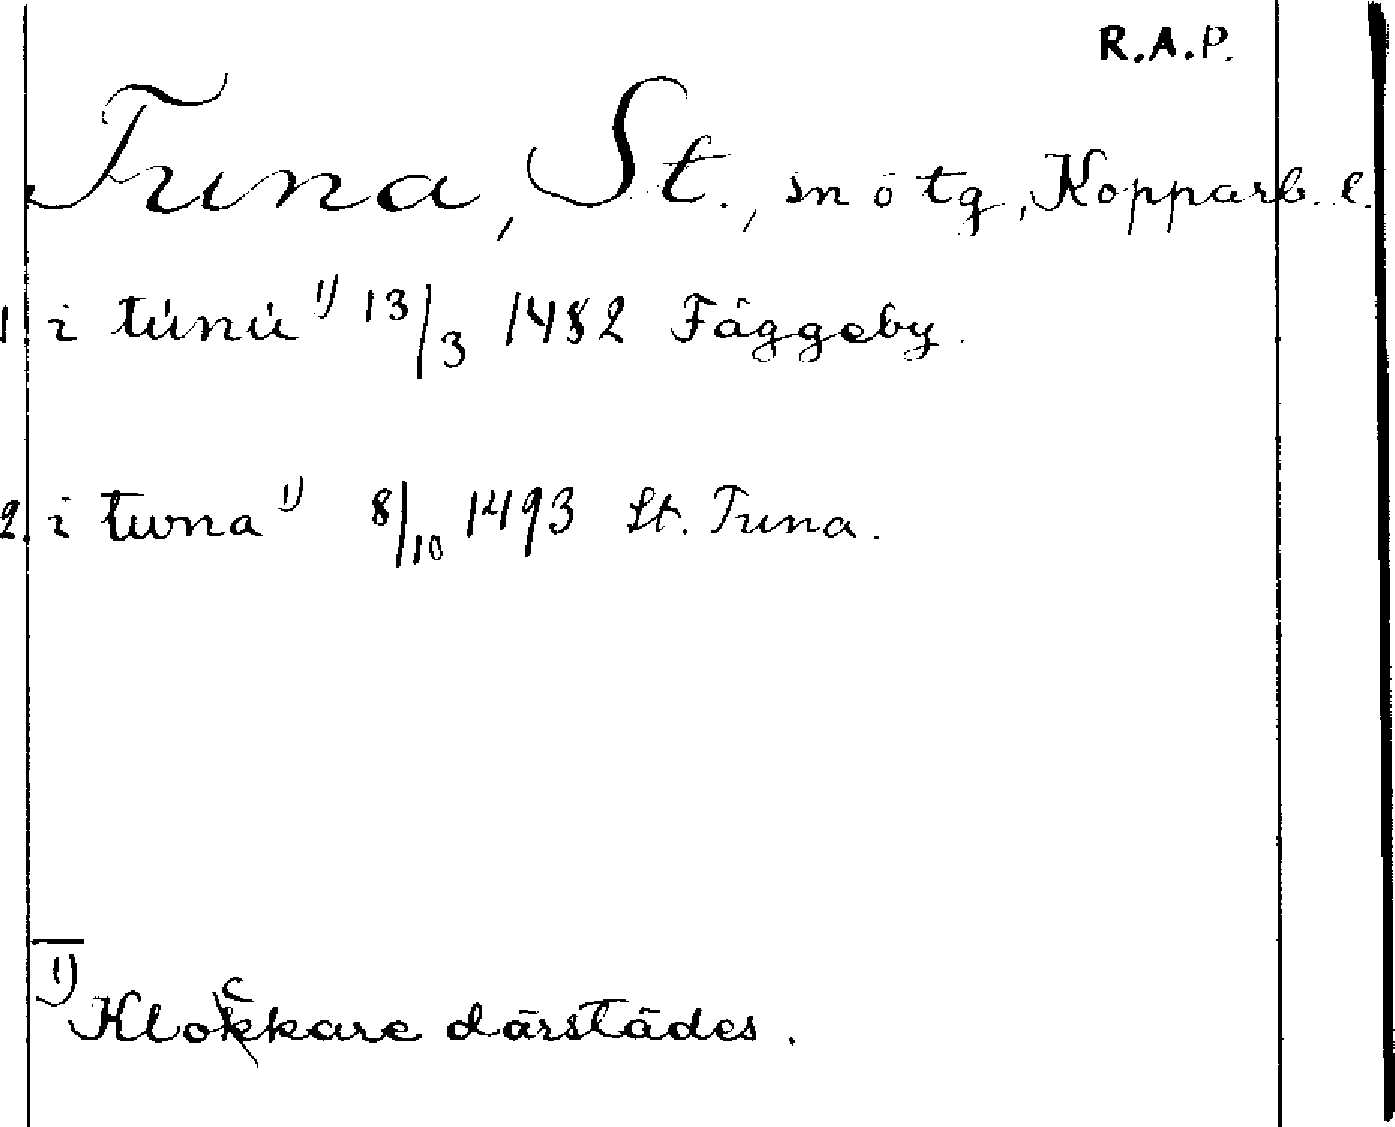 R.A.P.
Tuna, St., sn o tg, Kopparb. l.
1. i túnú 1) 13/3 1482 Fäggeby.
2. i tuna 1) 8/10 1493 St. Tuna.
1) Klockare därstädes.